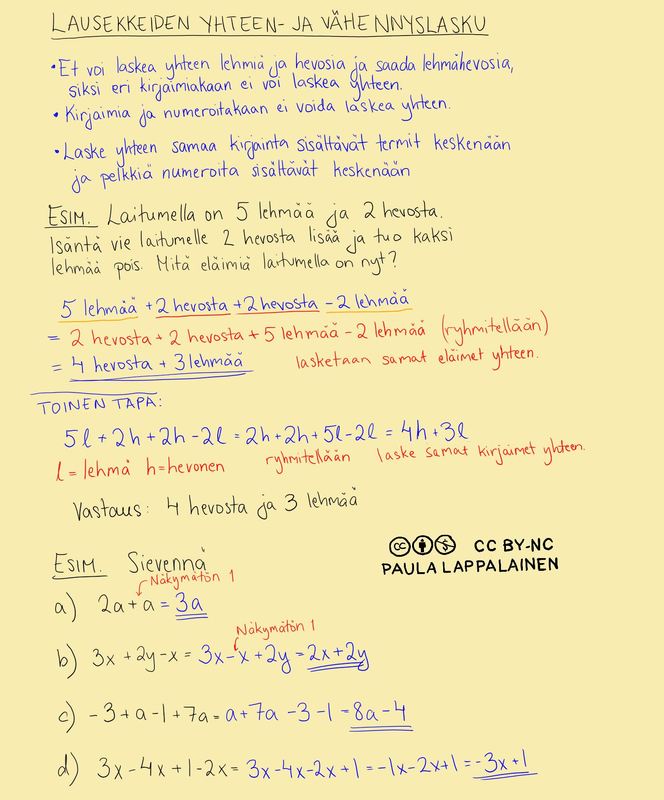 LAUSEKKEIDEN YHTEEN- JA VÄHENNYSLASKU
• Et voi laskea yhteen lehmiä ja hevosia ja saada lehmähevosia,
siksi eri kirjaimiakaan ei voi laskea yhteen.
• Kirjaimia ja numeroitakaan ei voida laskea yhteen.
• Laske yhteen samaa kirjainta sisältävät termit keskenään
ja pelkkiä numeroita sisältävät keskenään
ESIM. Laitumella on 5 lehmää ja 2 hevosta.
Isäntä vie laitumelle 2 hevosta lisää ja tuo kaksi
lehmää pois. Mitä eläimiä laitumella on nyt?
5 lehmää + 2 hevosta + 2 hevosta - 2 lehmää
= 2 hevosta + 2 hevosta + 5 lehmää - 2 lehmää (ryhmitellään)
= 4 hevosta + 3 lehmää lasketaan samat eläimet yhteen.
TOINEN TAPA:
5l + 2h + 2h - 2l = 2h + 2h + 5l - 2l = 4h + 3l
l = lehmä h = hevonen ryhmitellään laske samat kirjaimet yhteen.
Vastaus: 4 hevosta ja 3 lehmää
ESIM. Sievennä
CC BY-NC
PAULA LAPPALAINEN
Näkymätön 1
a) 2a + a = 3a
Näkymätön 1
b) 3x + 2y - x = 3x - x + 2y = 2x + 2y
c) -3 + a - 1 + 7a = a + 7a - 3 - 1 = 8a - 4
d) 3x - 4x + 1 - 2x = 3x - 4x - 2x + 1 = -1x - 2x + 1 = -3x + 1